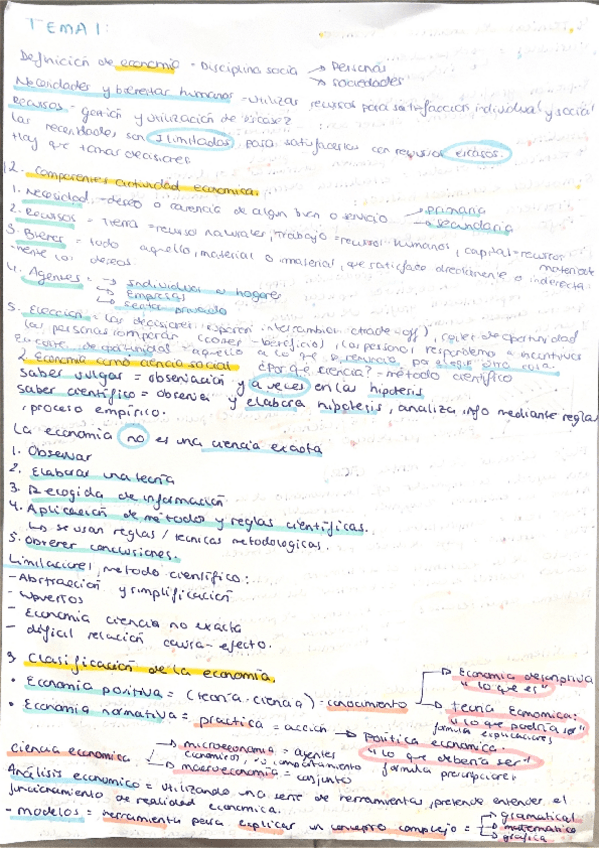 TEMA 1:
Definición de economía - Disciplina social → Personas
→ sociedades
Necesidades y bienestar humanos - utilizar recursos para satisfacción individual y social
Recursos - gestión y utilización de escasez?
Las necesidades son ilimitadas, para satisfacerlas con recursos escasos.
Hay que tomar decisiones
1.2. Componentes actividad economica.
1. Necesidad - deseo o carencia de algun bien o servicio → primaria
→ secundaria
2. Recursos = Tierra = recursos naturales, trabajo = recursos humanos, capital = recursos materiales
3. Bienes = todo aquello, material o material, que satisface directamente o indirecta-
mente los deseos.
4. Agentes = → Individuos o hogares
→ Empresas
→ sector privado
5. Elección = las decisiones intercambios (trade-off), coste de oportunidad
las personas comparan (costes - beneficios), las personas responden a incentivos
coste de oportunidad = aquello a lo que se renuncia por elegir otra cosa.
2. Economía como ciencia social ¿por qué ciencia? - método científico
saber vulgar = observación y a veces en las hipotesis
saber científico = observar y elabora hipotesis, analiza info mediante reglas
, proceso empírico.
La economía no es una ciencia exacta
1. Observar
2. Elaborar una teoría
3. Recogida de información
4. Aplicación de métodos y reglas científicas.
↳ se usan reglas / tecnicas metodologicas.
5. Obtener conclusiones.
Limitaciones, metodo científico:
- Abstracción y simplificación
- Economía ciencia no exacta
- dificil relación causa - efecto.
3. Clasificación de la economía.
• Economía positiva = (teoría - ciencia) - conocimiento → Economia descriptiva
"lo que es"
→ teoría Economica:
"lo que podría ser"
formula explicaciones
• Economía normativa = practica = acción → Política economica:
"lo que debería ser"
formula prescripciones
Ciencia economica → microeconomia = agentes
economicos, su comportamiento
→ macroeconomia = conjunto
Análisis economico = utilizando una serie de herramientas, pretende entender el
funcionamiento de realidad economica.
- modelos = herramienta para explicar un concepto complejo = → gramatical
→ matemático
→ grafica